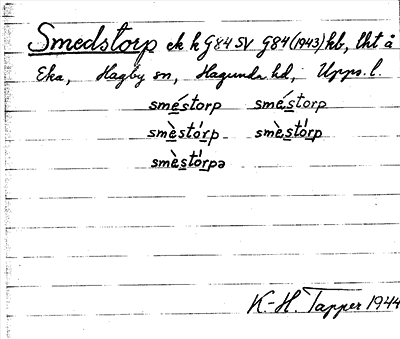 Smedstorp ek h G84 SV G84 (1943) hb, lht å
Eka, Hagby sn, Hagunda hd, Upps. l.
sméstorp sméstorp
smèstórp smèstórp
smèstórpə
K.-H. Tapper 1944